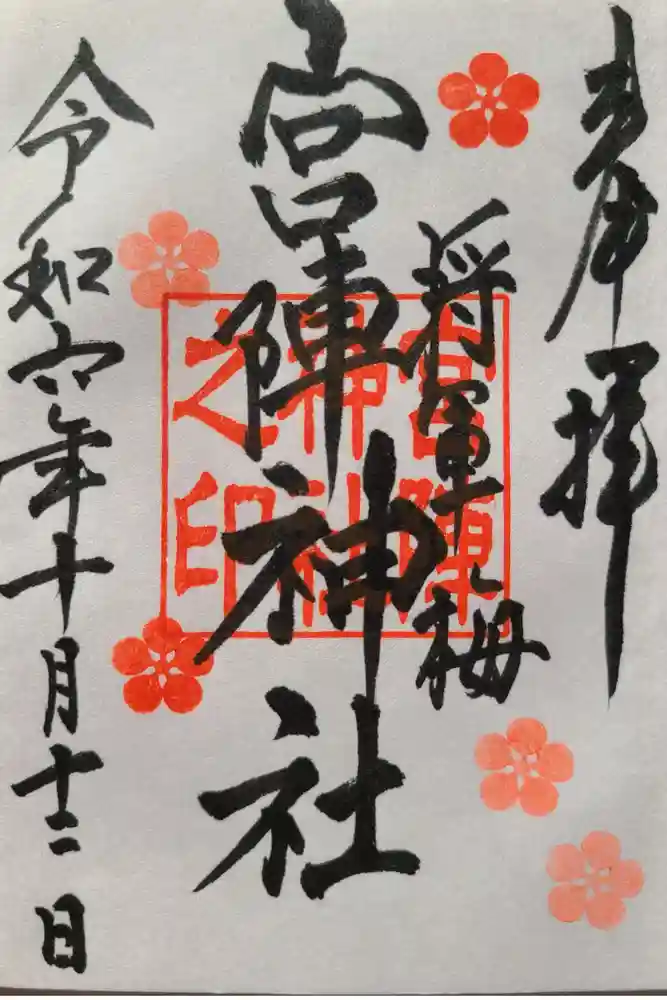 奉拝
将軍之梅
宮陣神社
宮陣
神社
之印
令和六年十月十二日